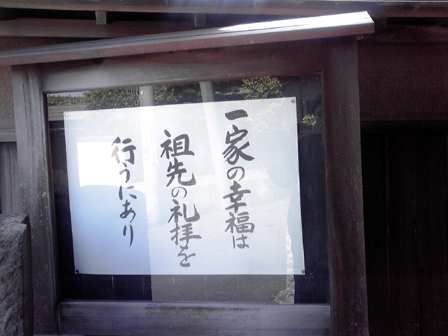 一家の幸福は
祖先の礼拝を
行うにあり